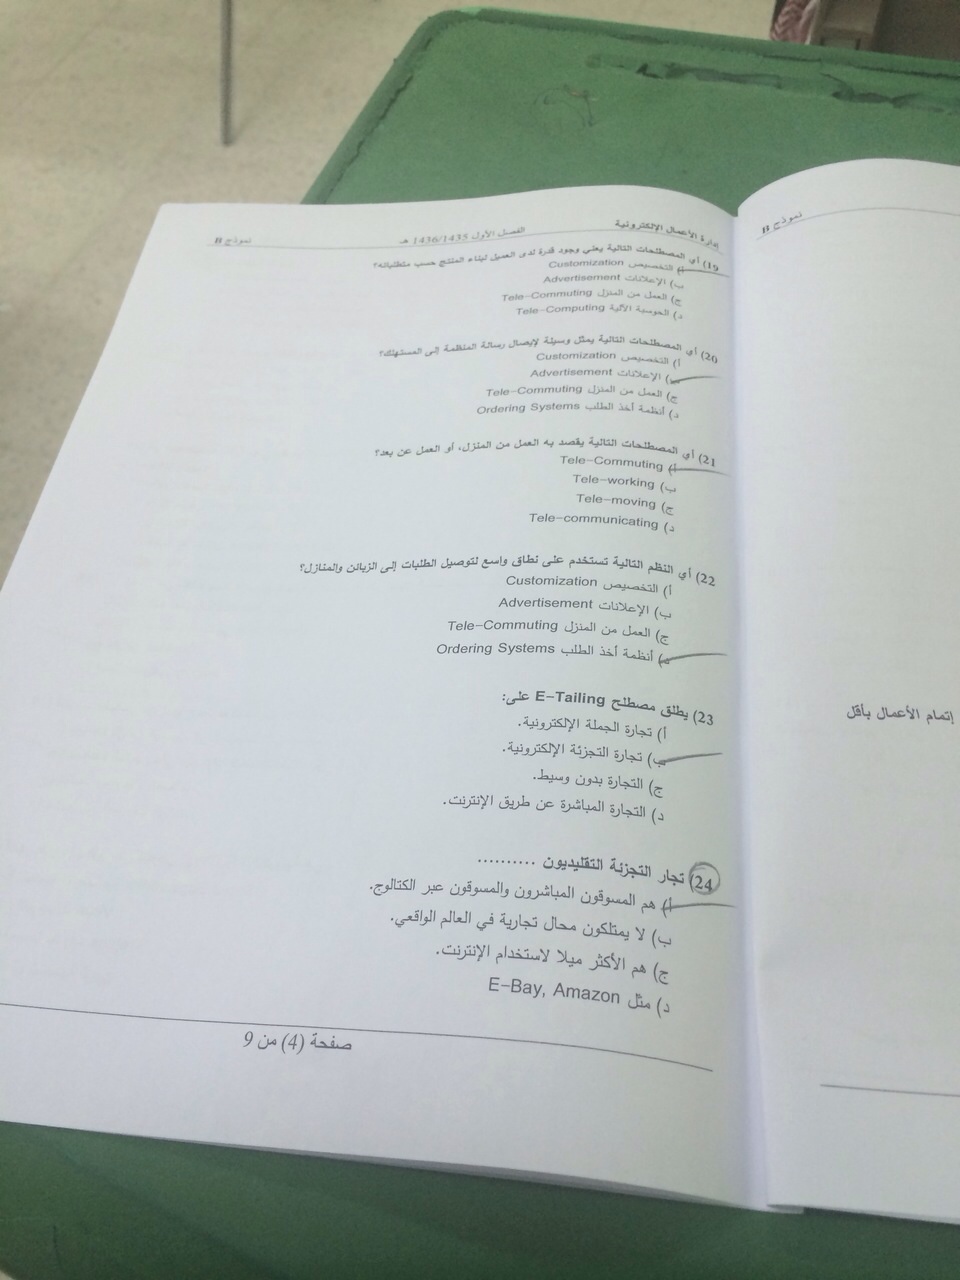 إدارة الأعمال الإلكترونية الفصل الأول 1436/1435 هـ نموذج B
19) أي المصطلحات التالية يعني وجود قدرة لدى العميل لبناء المنتج حسب متطلباته؟
أ) التخصيص Customization
ب) الإعلانات Advertisement
ج) العمل من المنزل Tele-Commuting
د) الحوسبة الآلية Tele-Computing
20) أي المصطلحات التالية يمثل وسيلة لإيصال رسالة المنظمة إلى المستهلك؟
أ) التخصيص Customization
ب) الإعلانات Advertisement
ج) العمل من المنزل Tele-Commuting
د) أنظمة أخذ الطلب Ordering Systems
21) أي المصطلحات التالية يقصد به العمل من المنزل، أو العمل عن بعد؟
أ) Tele-Commuting
ب) Tele-working
ج) Tele-moving
د) Tele-communicating
22) أي النظم التالية تستخدم على نطاق واسع لتوصيل الطلبات إلى الزبائن والمنازل؟
أ) التخصيص Customization
ب) الإعلانات Advertisement
ج) العمل من المنزل Tele-Commuting
د) أنظمة أخذ الطلب Ordering Systems
23) يطلق مصطلح E-Tailing على:
أ) تجارة الجملة الإلكترونية.
ب) تجارة التجزئة الإلكترونية.
ج) التجارة بدون وسيط.
د) التجارة المباشرة عن طريق الإنترنت.
24) تجار التجزئة التقليديون ..........
أ) هم المسوقون المباشرون والمسوقون عبر الكتالوج.
ب) لا يمتلكون محال تجارية في العالم الواقعي.
ج) هم الأكثر ميلا لاستخدام الإنترنت.
د) مثل E-Bay, Amazon
صفحة (4) من 9
نموذج B
إتمام الأعمال بأقل